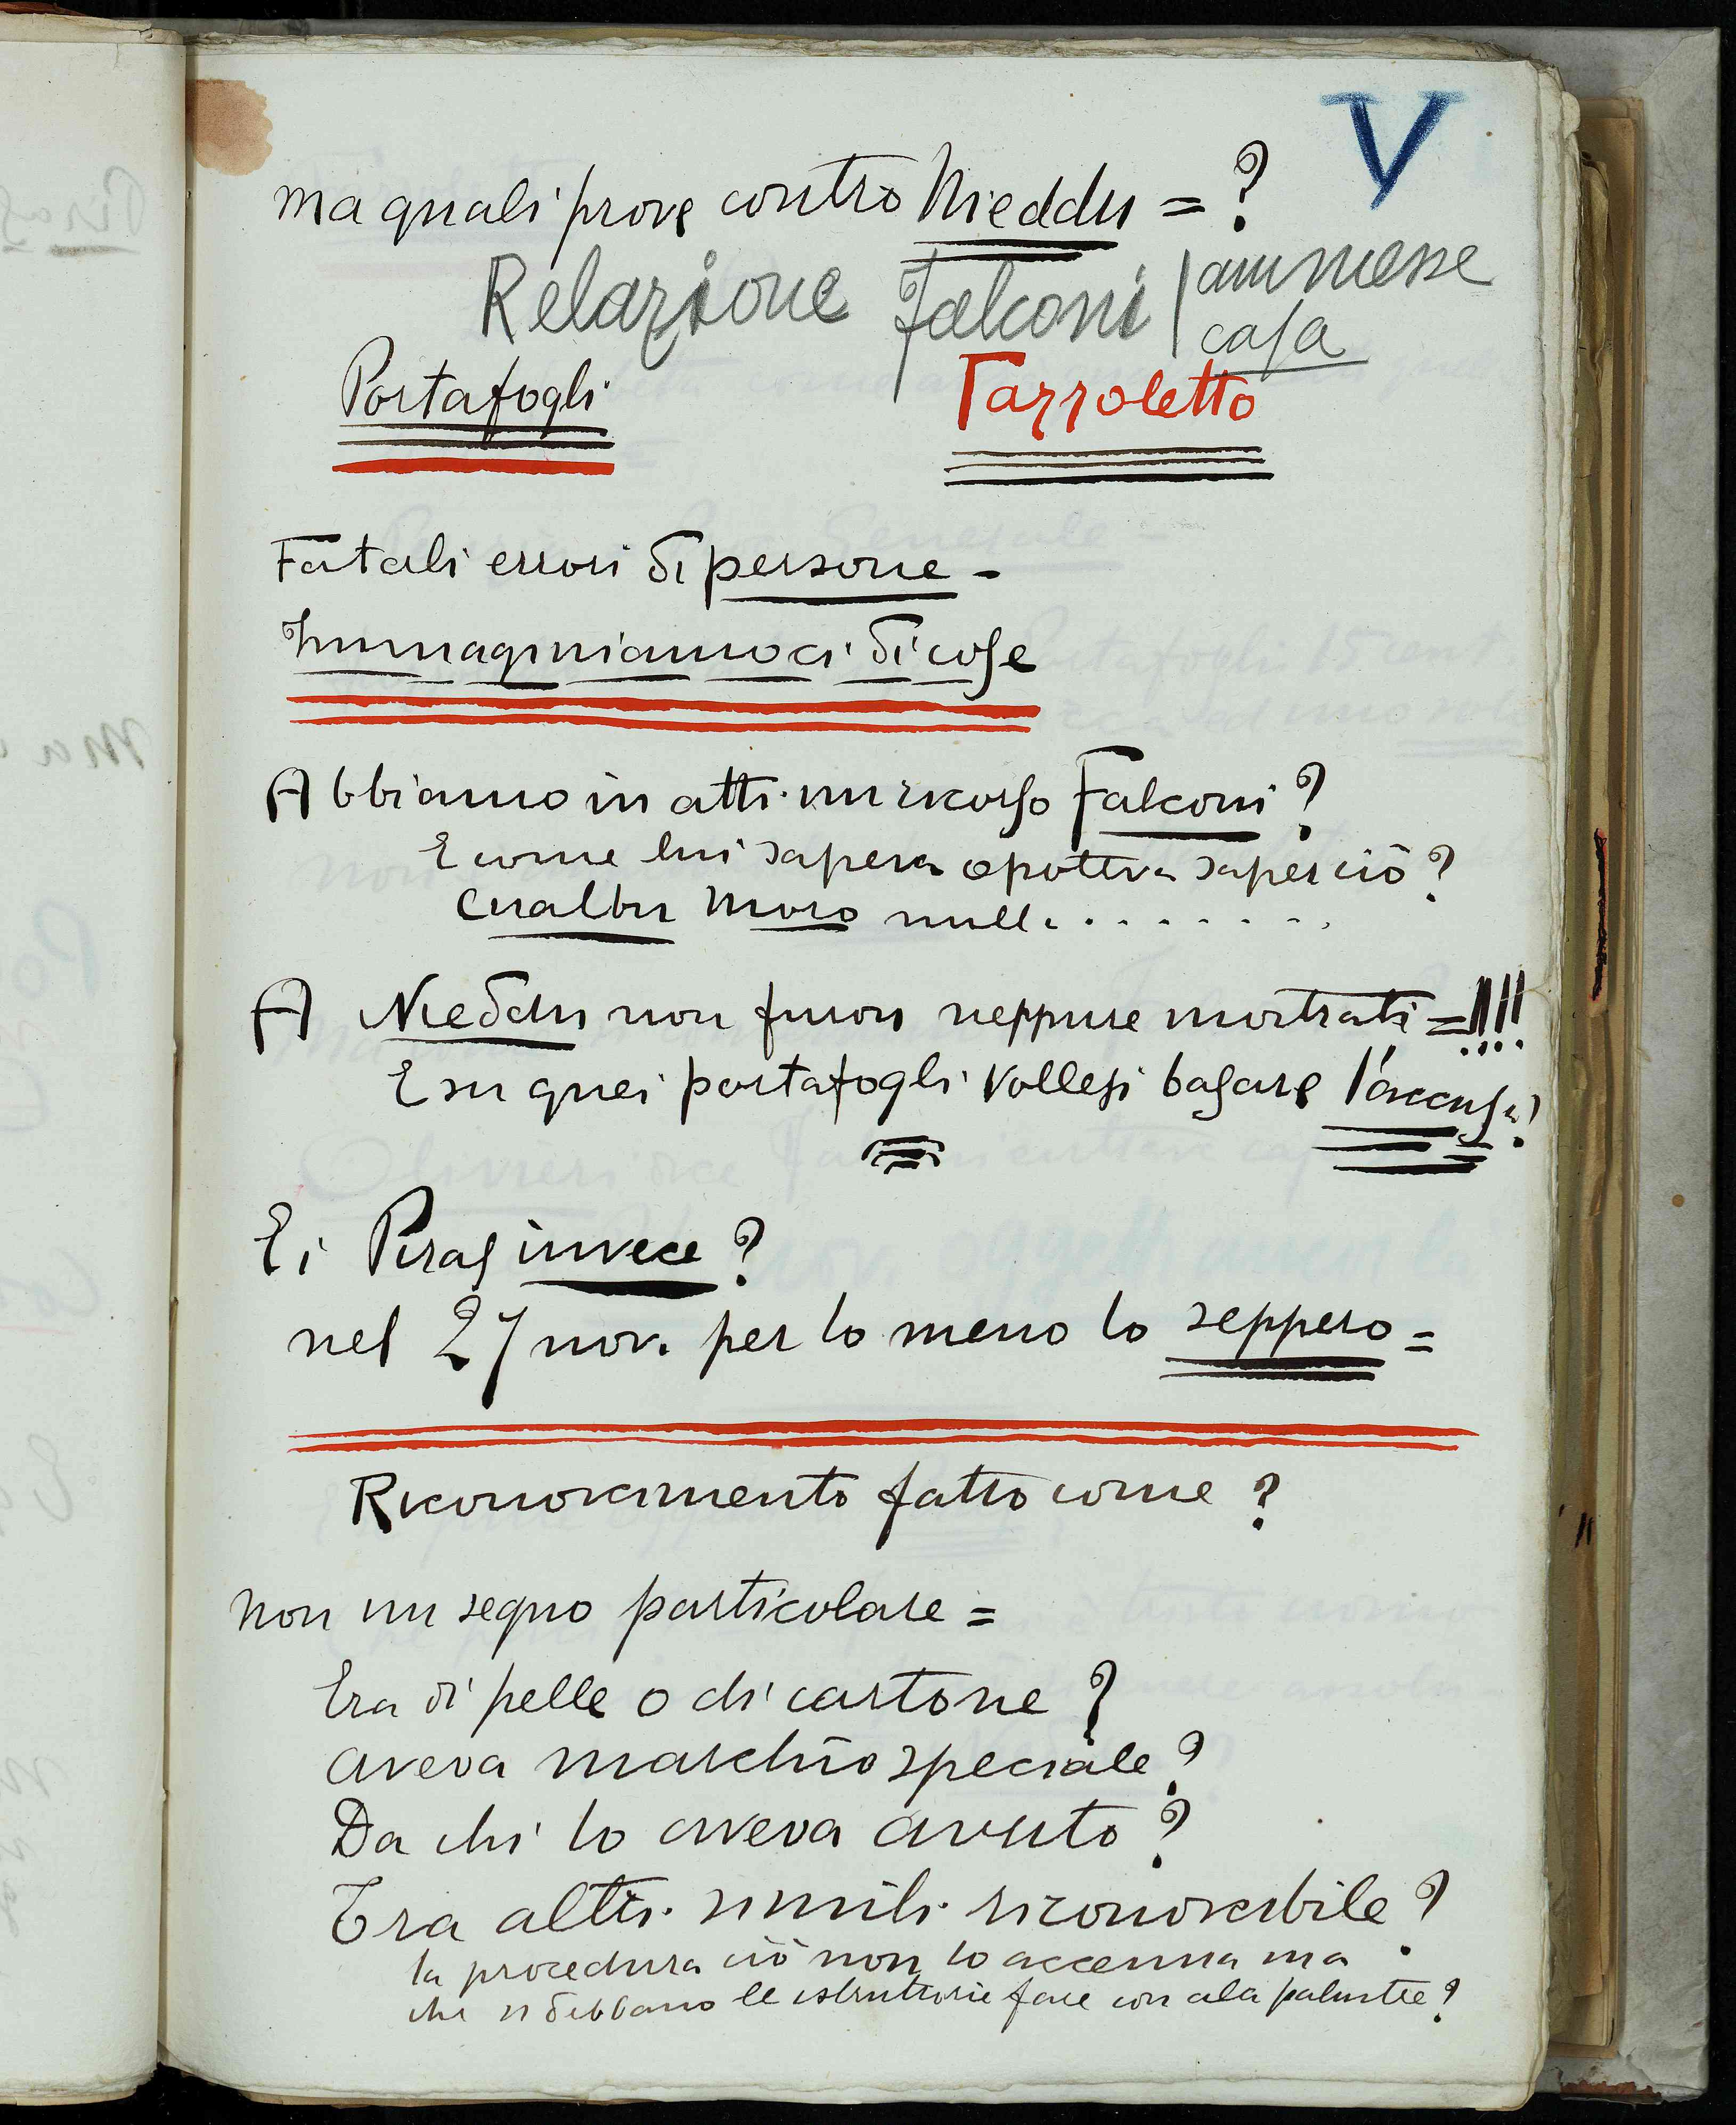 V
ma quali prove contro Nieddu = ?
Relazione Falconi | ammesse
casa
Portafogli Fazzoletto
Fatali errori di persone -
Immaginiamoci di cose
Abbiamo in atti un ricorso Falconi ?
E come lui sapeva o poteva saper ciò ?
Cualbu Moro nulla . . . . . . . .
A Nieddu non furon neppure mostrati = !!!!
E su quei portafogli vollesi basare l'accusa ?
E i Piras invece ?
nel 27 nov. per lo meno lo seppero =
Riconoscimento fatto come ?
non un segno particolare =
Era di pelle o di cartone ?
aveva marchio speciale ?
Da chi lo aveva avuto ?
Tra altri simili riconoscibile ?
la procedura ciò non lo accenna ma
che si debbano le istruttorie fare con a la palustre ?